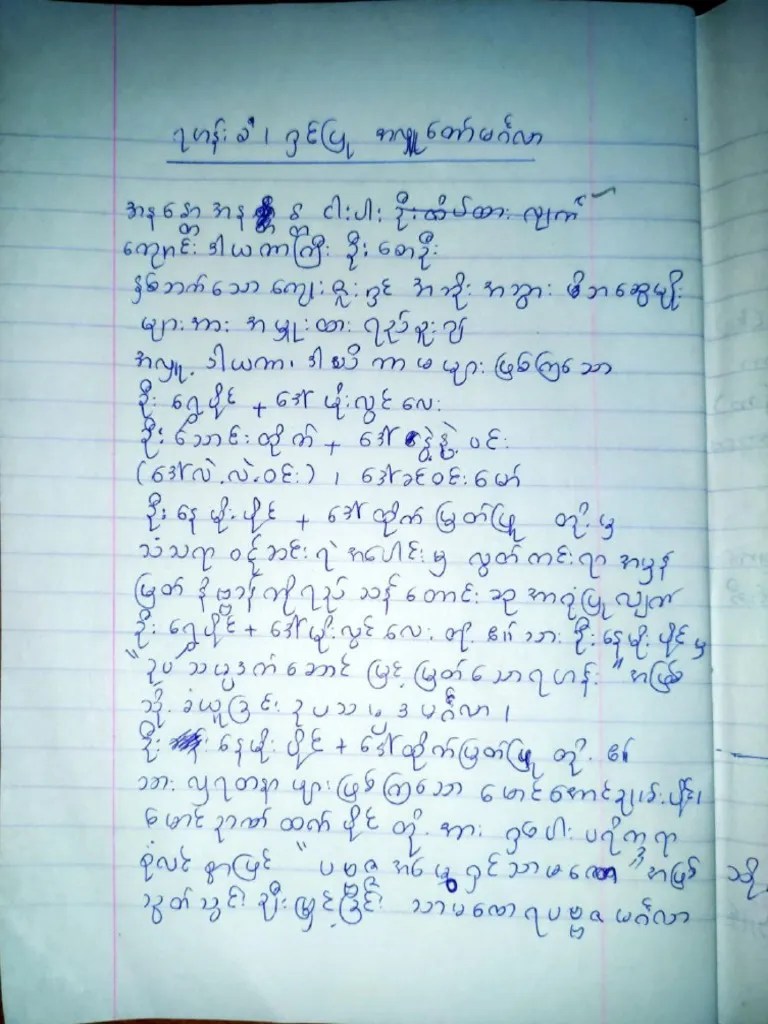 ရဟန်းခံ၊ ရှင်ပြု အလှူတော်မင်္ဂလာ
အနန္တော အနန္တ ငါးပါး ဦးထိပ်ထားလျက်
ကျောင်းဒါယကာကြီး ဦးစောဦး
နှစ်ဘက်သော ကျေးဇူးရှင် အဘိုး အဘွား မိဘဆွေမျိုး
များအား အမှူးထား ရည်စူး၍
အလှူ့ဒါယကာ၊ ဒါယိကာမများ ဖြစ်ကြသော
ဦးရွှေပိုင် + ဒေါ်ယိုးလွင်လေး
ဦးသောင်းထိုက် + ဒေါ်နွဲ့နွဲ့ဝင်း
(ဒေါ်လဲ့လဲ့ဝင်း)၊ ဒေါ်ခင်ဝင်းမော်
ဦးနေမိုးပိုင် + ဒေါ်ထိုက်မြတ်ဖြူ တို့မှ
သံသရာ ဝင့်ဆင်းရဲ အပေါင်းမှ လွတ်ကင်းရာ အမှန်
မြတ်နိဗ္ဗာန်ကိုရည်သန်တောင်းဆု အာရုံပြုလျက်
ဦးရွှေပိုင် + ဒေါ်ယိုးလွင်လေးတို့၏ သား ဦးနေမိုးပိုင်မှ
"ဥပသမ္ပဒက်ဆောင် မြင့်မြတ်သောရဟန်း" အဖြစ်
သို့ ခံယူခြင်း ဥပသမ္ပဒမင်္ဂလာ၊
ဦးနေမိုးပိုင် + ဒေါ်ထိုက်မြတ်ဖြူ တို့၏
သားလှရတနာများဖြစ်ကြသော မောင်အောင်ညွန့်ပိုင်၊
မောင်ဉာဏ်ထက်ပိုင် တို့အား ရှစ်ပါးပရိက္ခရာ
စုံလင်စွာဖြင့် "ပဗ္ဗဇ္ဇအမွေ ရှင်သာမဏေ" အဖြစ် သို့
သွတ်သွင်း ချီးမြှင့်ခြင်း သာမဏေရပဗ္ဗဇမင်္ဂလာ